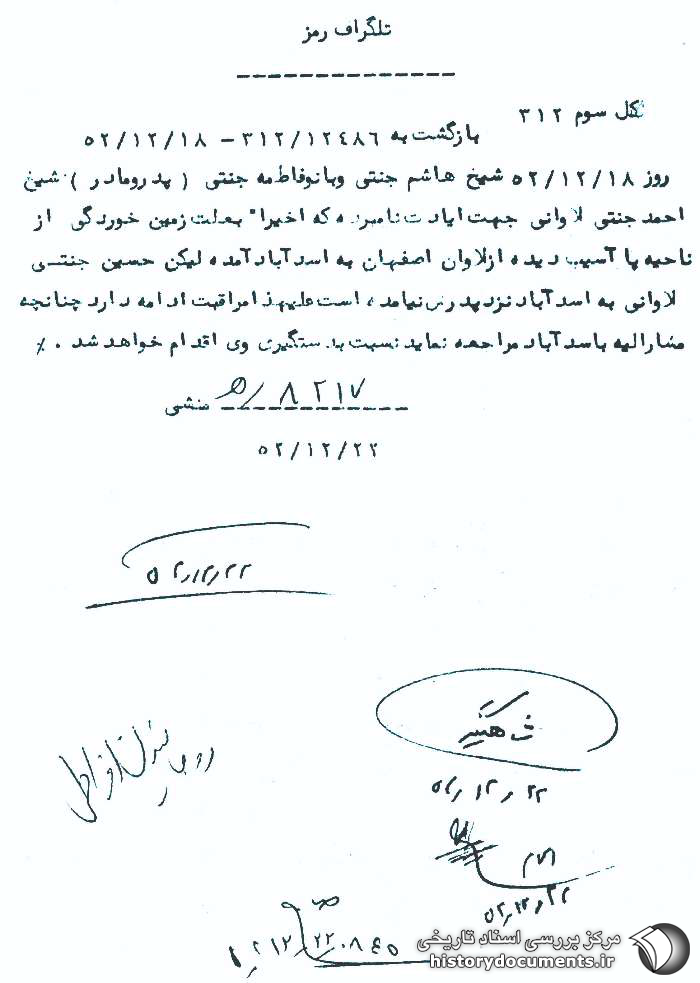 تلگراف رمز
کل سوم ۳۱۲
بازگشت به ۳۱۲/۱۲۴۸۶ – ۵۲/۱۲/۱۸
روز ۵۲/۱۲/۱۸ شیخ هاشم جنتی وبانوفاطمه جنتی ( پدرومادر ) شیخ
احمد جنتی لادانی جهت ایادت نامبرده که اخیرا" بعلت زمین خوردگی از
ناحیه پا آسیب دیده ازلادان اصفهان به اسدآبادآمده لیکن حسین جنتی
لادانی به اسدآباد نزد پدرش نیامده است علیهذا مراقبت ادامه دارد چنانچه
مشارالیه باسدآباد مراجعه نماید نسبت بدستگیری وی اقدام خواهد شد . ٪
۸۲۱۷
منشی
۵۲/۱۲/۲۲
۵۲/۱۲/۲۲
۵۲/۱۲/۲۲
۵۲/۱۲/۲۲
مرکز بررسی اسناد تاریخی
historydocuments.ir